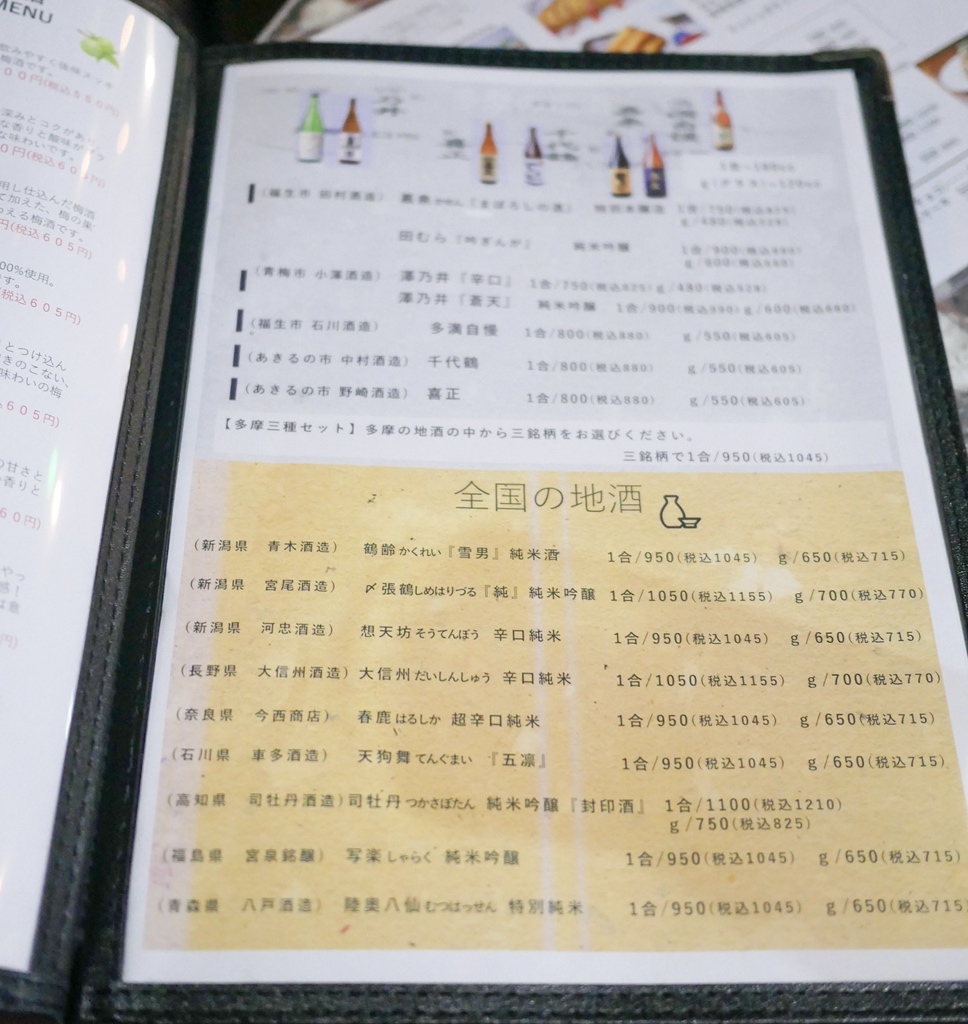 MENU
飲みやすく後味スッキ
梅酒です。
００円(税込５５０円)
深みとコクがあり、
な味わいです。
０円(税込６０５円)
用し仕込んだ梅酒
て加えた、梅の果
わえる梅酒です。
円(税込６０５円)
00%使用。
です。
税込６０５円)
とつけ込ん
きのこない、
味わいの梅
６０５円)
の甘さと
香りと
６０円)
(福生市 田村酒造) 嘉泉かせん『まぼろしの酒』 特別本醸造 1合/750(税込825)
g/480(税込528)
田むら『吟ぎんが』 純米吟醸 1合/900(税込990)
g/600(税込660)
(青梅市 小澤酒造) 澤乃井『辛口』 1合/750(税込825) g/480(税込528)
澤乃井『蒼天』 純米吟醸 1合/900(税込990) g/600(税込660)
(福生市 石川酒造) 多満自慢 1合/800(税込880) g/550(税込605)
(あきるの市 中村酒造) 千代鶴 1合/800(税込880) g/550(税込605)
(あきるの市 野崎酒造) 喜正 1合/800(税込880) g/550(税込605)
【多摩三種セット】多摩の地酒の中から三銘柄をお選びください。
三銘柄で1合/950(税込1045)
全国の地酒
(新潟県 青木酒造) 鶴齢かくれい『雪男』純米酒 1合/950(税込1045) g/650(税込715)
(新潟県 宮尾酒造) 〆張鶴しめはりづる『純』純米吟醸 1合/1050(税込1155) g/700(税込770)
(新潟県 河忠酒造) 想天坊そうてんぼう 辛口純米 1合/950(税込1045) g/650(税込715)
(長野県 大信州酒造) 大信州だいしんしゅう 辛口純米 1合/1050(税込1155) g/700(税込770)
(奈良県 今西商店) 春鹿はるしか 超辛口純米 1合/950(税込1045) g/650(税込715)
(石川県 車多酒造) 天狗舞てんぐまい 『五凛』 1合/950(税込1045) g/650(税込715)
(高知県 司牡丹酒造) 司牡丹つかさぼたん 純米吟醸『封印酒』 1合/1100(税込1210)
g/750(税込825)
(福島県 宮泉銘醸) 写楽しゃらく 純米吟醸 1合/950(税込1045) g/650(税込715)
(青森県 八戸酒造) 陸奥八仙むつはっせん 特別純米 1合/950(税込1045) g/650(税込715